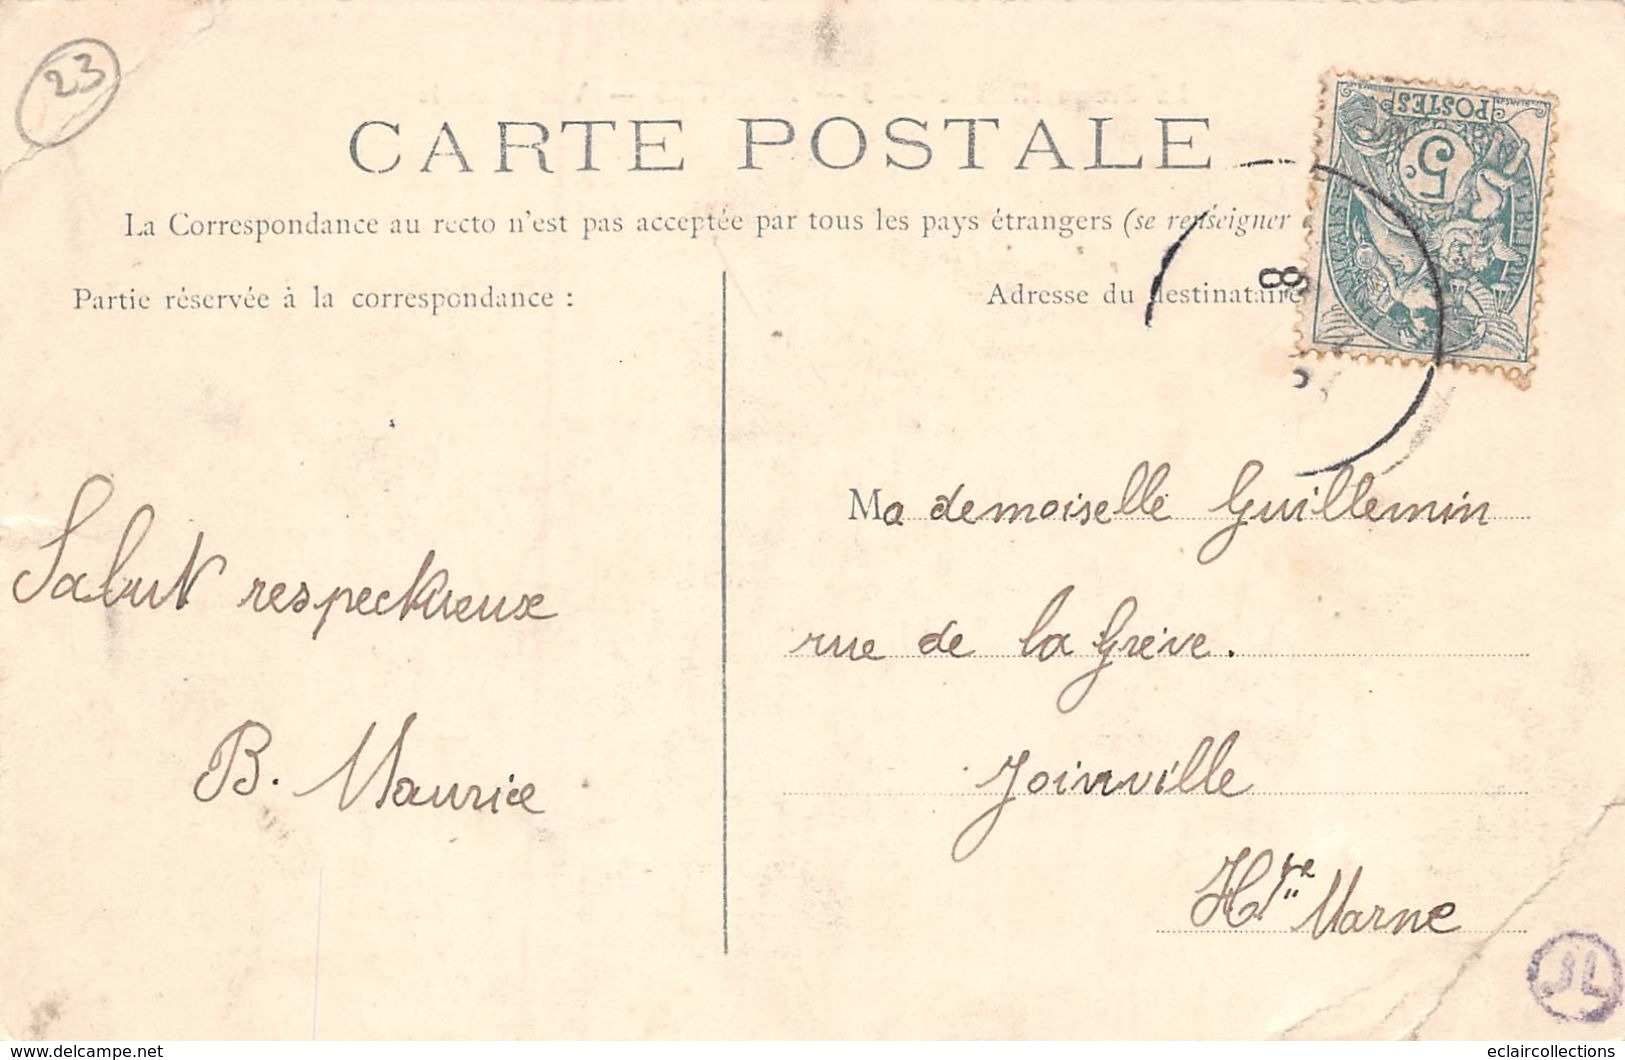 23
CARTE POSTALE
La Correspondance au recto n'est pas acceptée par tous les pays étrangers (se renseigner
Partie réservée à la correspondance :
Adresse du destinataire
POSTES
5c
8
Salut respectueux
B. Maurice
Mademoiselle Guillemin
rue de la Grève.
Joinville
Hte Marne
JL
eclaircollections
www.delcampe.net